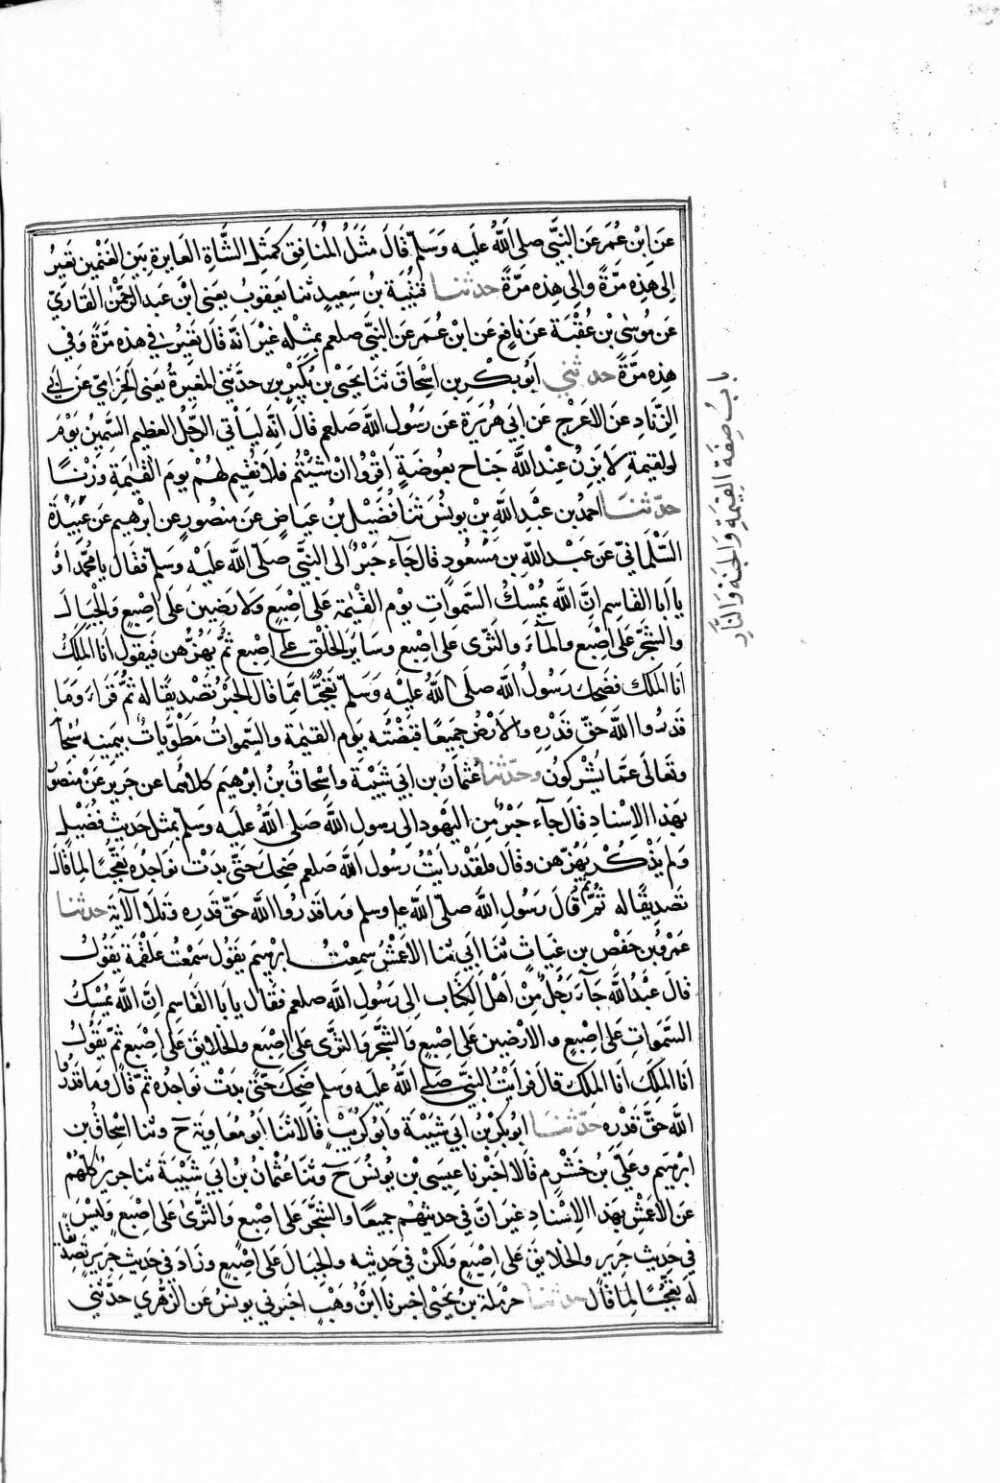 عَن ابْن عُمَر عَن النبَّي صلى اللهُ عليَه وَسَلّم قَالَ مَثَلُ المُنَافِق كَمثلِ الشَّاةِ العَايرة بَين الغَنمين تعِيرُ
اِلى هَذه مرّةً والى هِذه مرّةً حدثنا قتيبَة بن سَعيدٍ ثنا يَعقوبُ يعَنى ابْن عَبد الرحمٰن القارىّ
عَن مُوسٰى بن عُقبَة عَن نَافعٍ عَن ابْن عُمَر عَن النبيّ صلعم بمثلِه غيرَ انّه قالَ تَعيرُ في هذه مرّةً وَفي
هِذه مرّةً حدثني اَبو بكرِ بن اِسْحاقَ ثنا يَحيى بن بُكَيرٍ حدّثني المغيرةُ يَعنى الحزَاميّ عَن اَبي
الزنَادِ عن الاعرجِ عَن ابي هريَرة عَن رَسُول الله صلعم قالَ انّه ليَأتي الرّجُل العَظيم السَّمين يَوْمَ
لولقيمةِ لا يَزنُ عِند اللّٰه جَناح بعوضَةٍ اقرُوا انْ شئتُم فلَا نُقيمُ لهمْ يومَ القيٰمَةِ وزْنًا
حدّثنَا احمدُ بن عَبْد اللّٰه بْن يونُسَ ثنا فُضيْلُ بن عيَاضٍ عَن منصُورٍ عن ابرهيم عَن عَبيْدَة
السَّلْمانيّ عَن عَبْد اللّٰه بن مَسْعُودٍ قالَ جَآء حَبْرٌ الى النبّي صَلّى اللّٰه عَلَيْه وَسَلّم فقَال يا مُحمّد اَوْ
يا اَبَا القاسم اِنَّ اللّٰه يُمْسِكُ السّمواتِ يَوْم القيٰمَة عَلى اِصْبَعٍ وَالارضين عَلى اِصبعٍ والجبَالَ
والشجَر عَلى اِصبَعٍ والمآءَ والثّرى عَلى اصبعٍ وَسَاير الخلق على اِصبعٍ ثمُّ يَهُزّهُنَّ فيَقولُ اَنا المَلكُ
اَنا الملك فضحك رَسُولُ اللّٰه صلى اللّٰهُ عليْه وَسَلّم تَعَجُّبًا مِمّا قَال الحَبْر تَصْديقًا له ثمُّ قَرأ وَمَا
قدَروا اللّٰهَ حَقّ قَدْرِه والاَرْضُ جَميعًا قبْضَتُه يَوْم القيٰمة والسّمواتُ مَطوِيّاتٌ بيَمينه سُبْحانَه
وتعَالى عَمّا يُشْركُونَ وحدّثنا عُثمَان بن ابي شَيْبَة واِسْحاقُ بنُ ابرهيَم كلاهُما عن جَرير عَنْ منصُور
بهَذا الاِسْنَاد قَال جآء حَبرٌ مِن اليَهود الى رسول اللّٰه صَلى اللّٰهُ عليَه وَسَلم بمثل حَديث فُضَيل
وَلم يَذْكُرْ يَهُزّهُن وقَالَ ولقَد رايْتُ رسُول اللّٰه صَلعم ضِحكَ حَتّى بَدَتْ نَواجذُه تَعجّبًا لمَا قَالَ
تصديقًا له ثمُّ قَالَ رَسُول اللّٰه صَلّى اللّٰه عليه وسلم وَما قدَروا اللّٰه حَقّ قَدره وَتلا الآيَة حدثنا
عُمَر بن حَفْص بن غيَاثٍ ثنَا اَبي ثنا الاَعمش سَمعْتُ ابرهيَم يقوُل سَمعْتُ عَلقمَة يَقُولُ
قالَ عَبْدُ اللّٰه جَآءَ رَجُلٌ مِنْ اَهْل الكتَاب اِلى رسُول اللّٰه صلعم فقَال يا اَبا القَاسِم اِنَّ اللّٰه يُمْسِكُ
السّمَواتِ عَلى اِصْبعٍ والارضينَ عَلى اِصْبعٍ وَالشجَرَ وَالثّرى عَلى اِصْبَعٍ والخلَايقَ عَلى اِصْبَع ثمّ يقُولُ
اَنَا المَلِكُ اَنا الملكُ قالَ فراَيْتُ النبىّ صَلى اللّٰهُ عليَه وَسَلم ضَحِكَ حَتّى بَدَتْ نوَاجذُه ثمّ قَالَ وَمَا قدَرُوا
اللّٰهَ حَقَّ قَدْرِه حدّثنَا ابُو بكر بْن اَبي شَيْبَة وَاَبوُ كُريْبٍ قَالا ثنا اَبوُ مُعَاوِيَة حَ وثنا اسْحاقُ بن
ابرهيم وعَليّ بنُ خَشْرمٍ قَالا اخْبَرنا عيسَى بن يُونُسَ حَ وثنا عُثمَانُ بن اَبي شَيْبَة ثنا جرير كُلّهُمْ
عَن الاعمَش بهَذا الاِسْنَادِ غيَر انّ في حديثهمْ جميعًا والشجَرَ عَلى اِصْبعٍ وَالثّرٰى عَلى اِصبَعٍ وَليْسَ
في حَديثِ جَريرٍ والخلايقَ عَلى اِصبَعٍ وَلكنْ في حَديثِه والجبَالَ عَلى اِصبعٍ وزادَ في حَديث جَريرٍ تصْديقًا
لَه تَعجّبًا لِمَا قَالَ حدثنا حَرمَلةُ بنُ يَحيى اخبرنا ابْنُ وَهْبٍ اخبَرني يونُسُ عَن الزهُري حَدّثني
بابُ صِفَةِ القِيمَةِ وَالجنّةِ وَالنّارِ